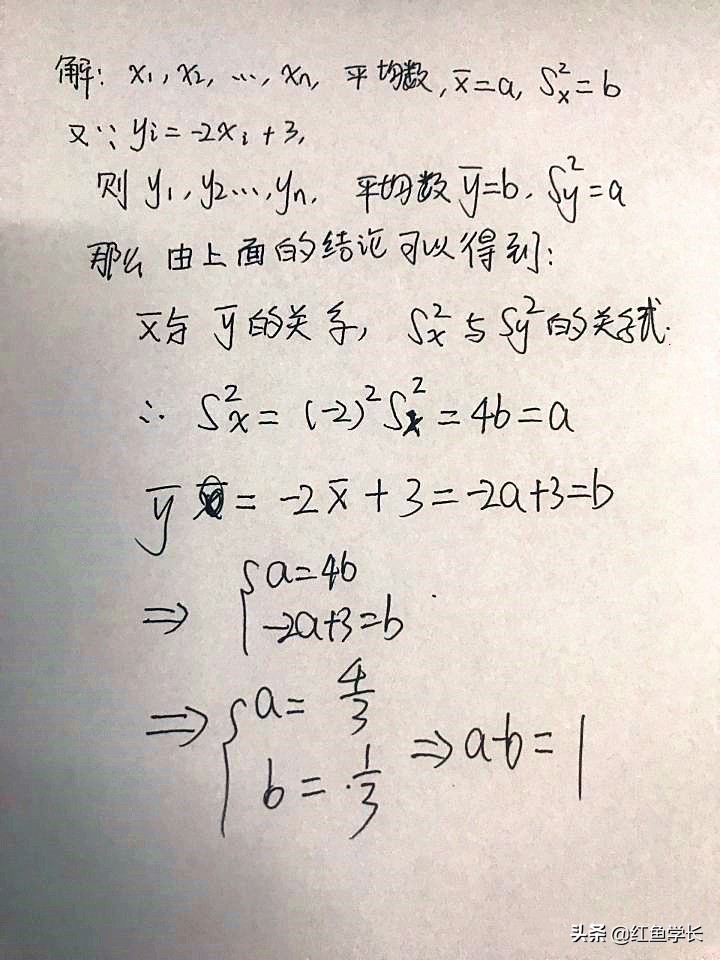 解: x₁, x₂, …, xₙ, 平均数, x̄=a, Sx²=b
又∵ yi=-2xi+3,
则 y₁, y₂…, yₙ, 平均数 ȳ=b, Sy²=a
那么 由上面的结论可以得到:
x̄与 ȳ的关系, Sx²与Sy²的关系式.
∴ Sx²=(-2)²Sx²=4b=a
ȳ = -2x̄+3=-2a+3=b
⇒ { a=4b
-2a+3=b
⇒ { a= 4/3
b= 1/3 ⇒ a-b=1
头条 @红鱼学长